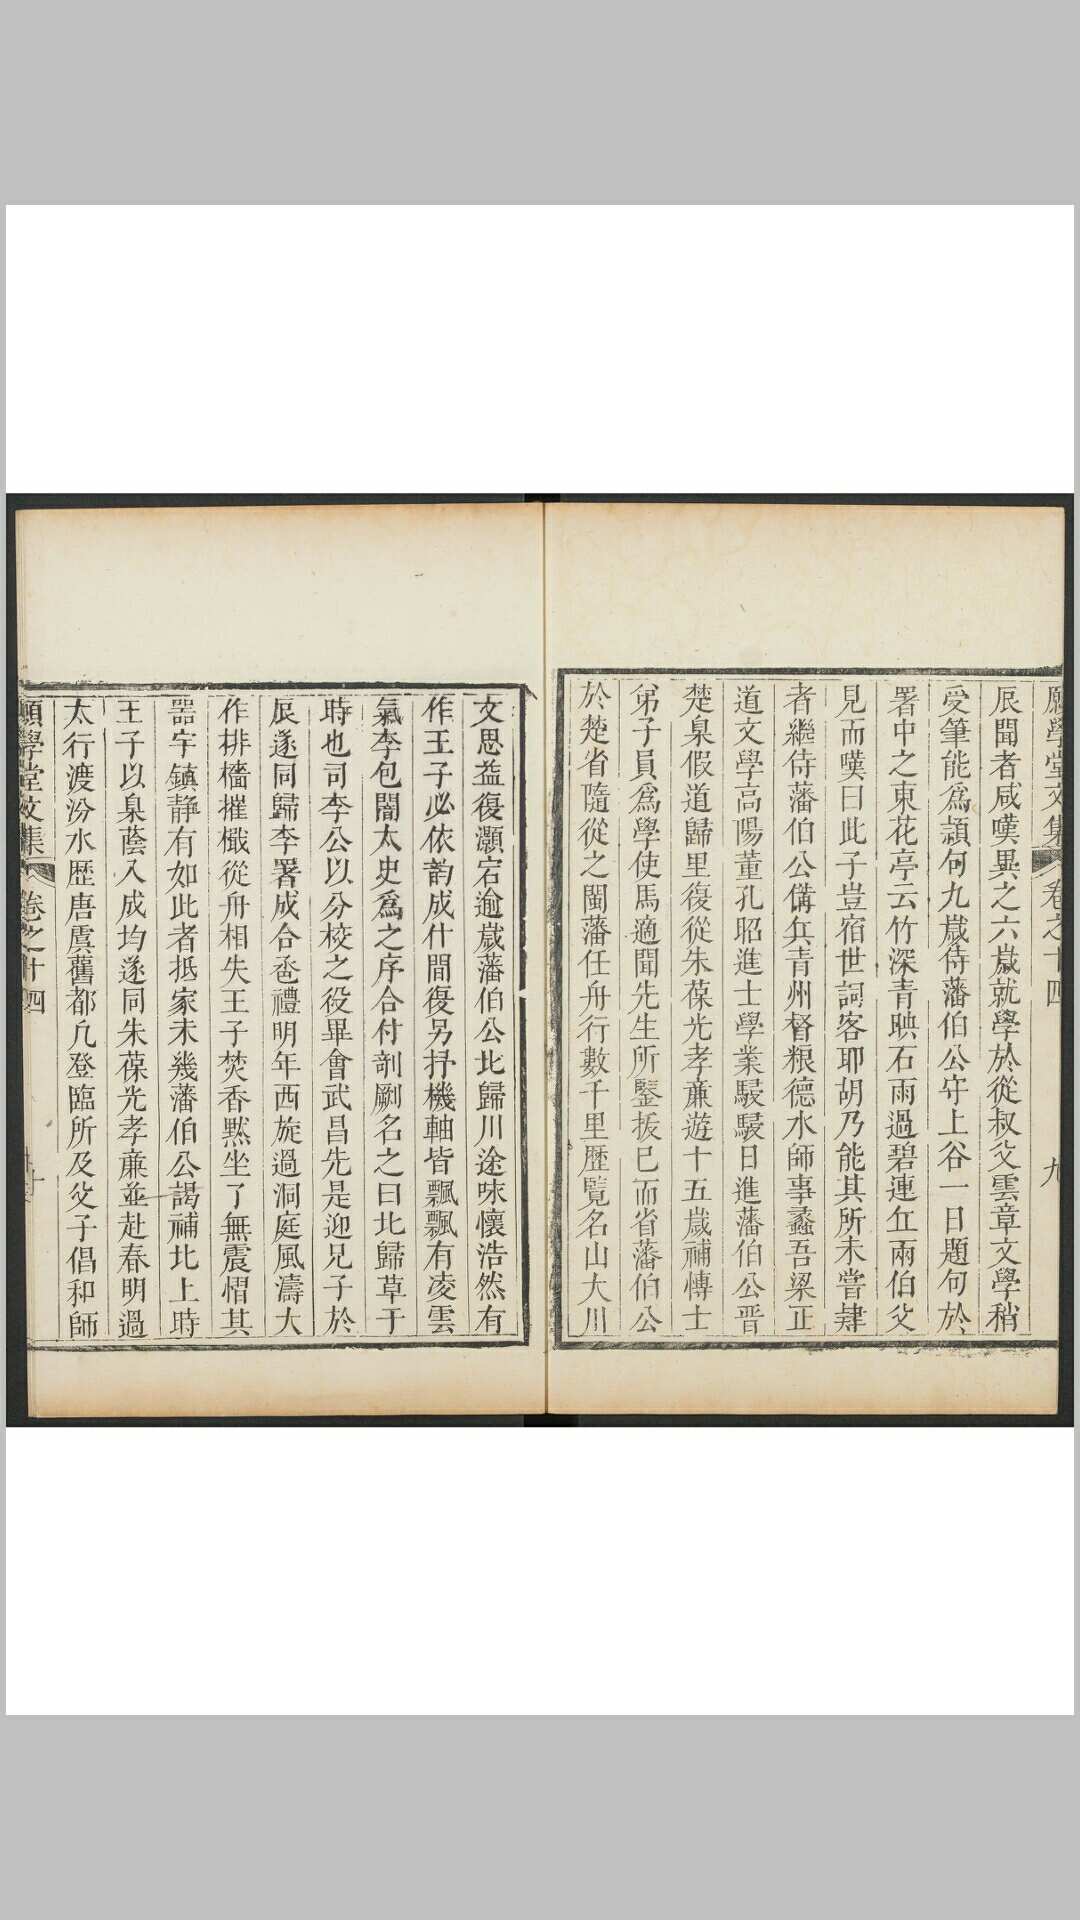 願學堂文集 卷之十四 九
辰聞者咸嘆異之六歲就學於從叔父雲章文學稍
受筆能爲韻句九歲侍藩伯公守上谷一日題句於
署中之東花亭云竹深青映石雨過碧連丘兩伯父
見而嘆曰此子豈宿世詞客耶胡乃能其所未嘗肄
者繼侍藩伯公備兵青州督粮德水師事蠡吾梁正
道文學高陽董孔昭進士學業駸駸日進藩伯公晋
楚臬假道歸里復從朱葆光孝亷遊十五歲補博士
弟子員爲學使馬適聞先生所鑒拔已而省藩伯公
於楚省隨從之閩藩任舟行數千里歷覽名山大川
文思益復灝宕逾歲藩伯公北歸川途咏懷浩然有
作王子必依韵成什間復另抒機軸皆飄飄有凌雲
氣李包闇太史爲之序合付剞劂名之曰北歸草于
時也司李公以分校之役畢會武昌先是迎兄子於
辰遂同歸李署成合巹禮明年西旋過洞庭風濤大
作排檣摧檝從舟相失王子焚香黙坐了無震慴其
器宇鎮静有如此者抵家未幾藩伯公謁補北上時
王子以臬蔭入成均遂同朱葆光孝亷並赴春明過
太行渡汾水歷唐虞舊都凢登臨所及父子倡和師
願學堂文集 卷之十四 十